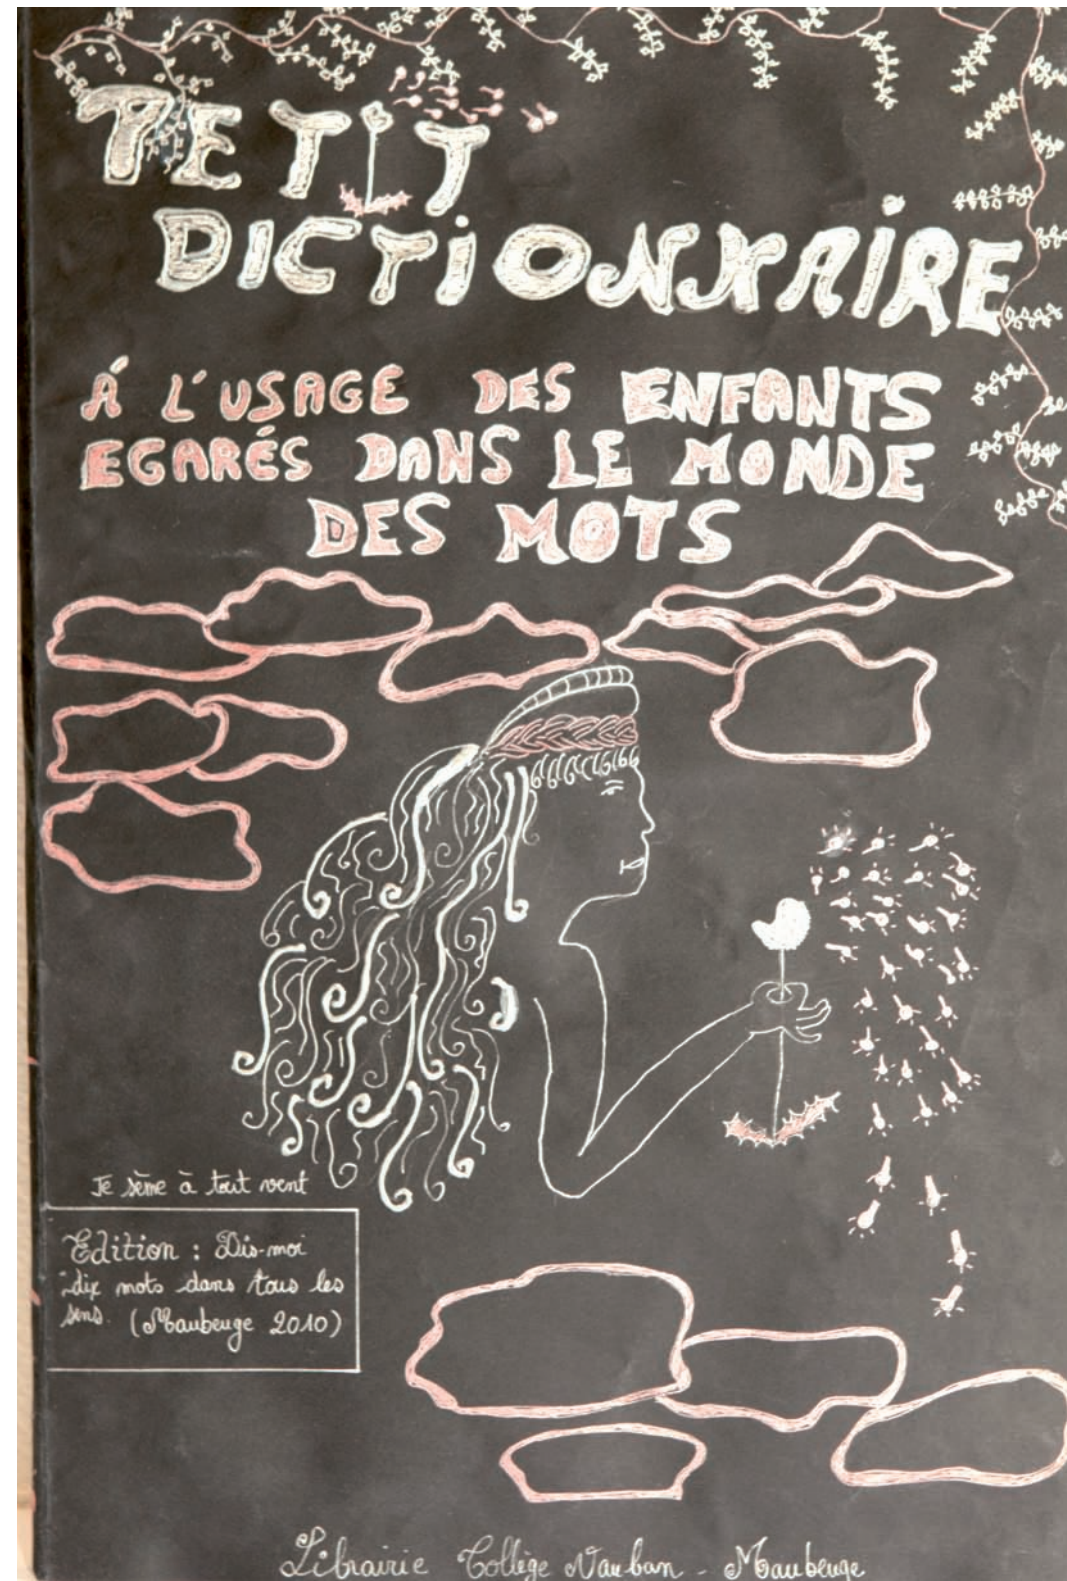 PETIT
DICTIONNAIRE
Á L'USAGE DES ENFANTS
EGARÉS DANS LE MONDE
DES MOTS
Je sème à tout vent
Edition : Dis-moi
dix mots dans tous les
sens. (Maubeuge 2010)
Librairie Collège Vauban - Maubeuge